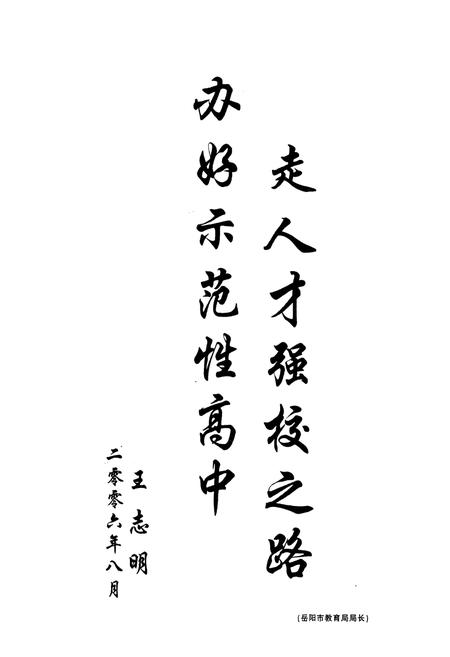 走人才强校之路
办好示范性高中
王志明
二零零六年八月
(岳阳市教育局局长)